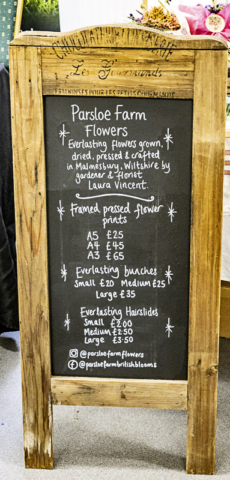 Les Gourmands
Parsloe Farm
Flowers
Everlasting flowers grown,
dried, pressed & crafted
in Malmesbury, Wiltshire by
gardener & florist
Laura Vincent.
Framed pressed flower
prints
A5 £25
A4 £45
A3 £65
Everlasting bunches
Small £20 Medium £25
Large £35
Everlasting Hairslides
Small £2.00
Medium £2.50
Large £3.50
@parsloefarmflowers
@parsloefarmbritishblooms